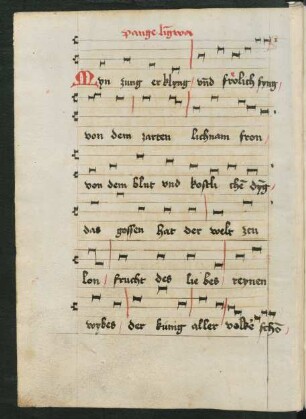 Pange lingwa
Myn zung erklyng / vnd frölich syng /
von dem zarten lichnam fron /
von dem blut vnd kostli chen
das gossen hat der welt zeu
lon / frucht des lie bes / reynen
wybes / der küng aller volke schō